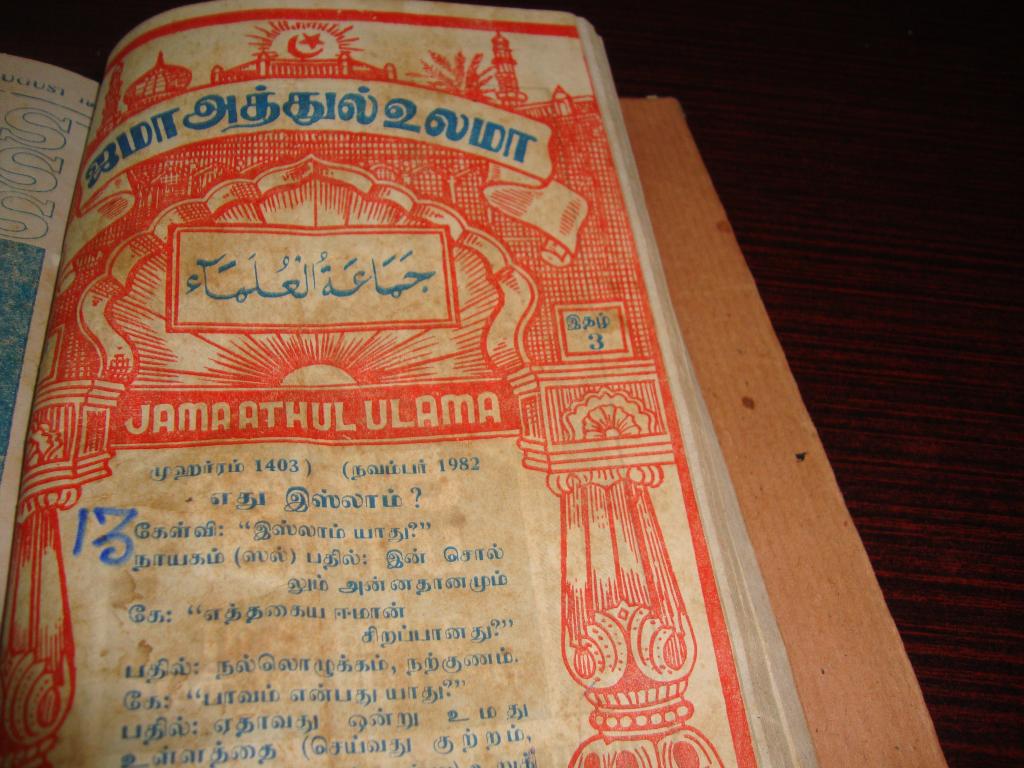 UGUST
ஜமா அத்துல் உலமா
جَمَاعَةُ الْعُلَمَاء
இதழ்
3
JAMAATHUL ULAMA
முஹர்ரம் 1403) (நவம்பர் 1982
எது இஸ்லாம் ?
13
கேள்வி: “இஸ்லாம் யாது?”
நாயகம் (ஸல்) பதில்: இன் சொல்
லும் அன்னதானமும்
கே: “எத்தகைய ஈமான்
சிறப்பானது?”
பதில்: நல்லொழுக்கம், நற்குணம்.
கே: “பாவம் என்பது யாது?”
பதில்: ஏதாவது ஒன்று உமது
உள்ளத்தை (செய்வது குற்றம்,